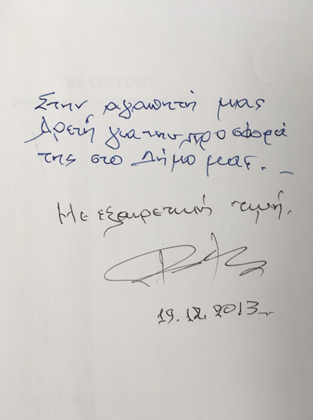 Στην αγαπητή μας
Αρετή για την προσφορά
της στο Δήμο μας.
Με εξαιρετική τιμή.
19.12.2013